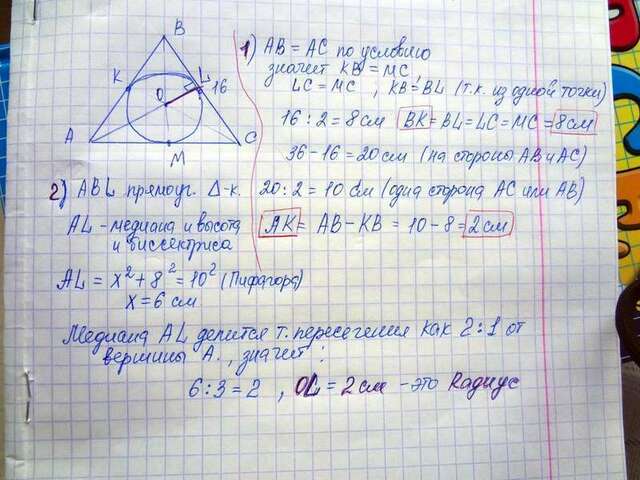 B
K
L
16
O
A
C
M
1) AB = AC по условию
значит KB = MC,
LC = MC , KB = BL (т.к. из одной точки)
16 : 2 = 8 см BK = BL = LC = MC = 8 см
36 - 16 = 20 см (на стороны AB и AC)
20 : 2 = 10 см (одна сторона AC или AB)
AK = AB - KB = 10 - 8 = 2 см
2) ABL прямоуг. Δ-к.
AL - медиана и высота
и биссектриса
AL = x² + 8² = 10² (Пифагора)
x = 6 см
Медиана AL делится т. пересечения как 2 : 1 от
вершины A. , значит :
6 : 3 = 2 , OL = 2 см - это Радиус